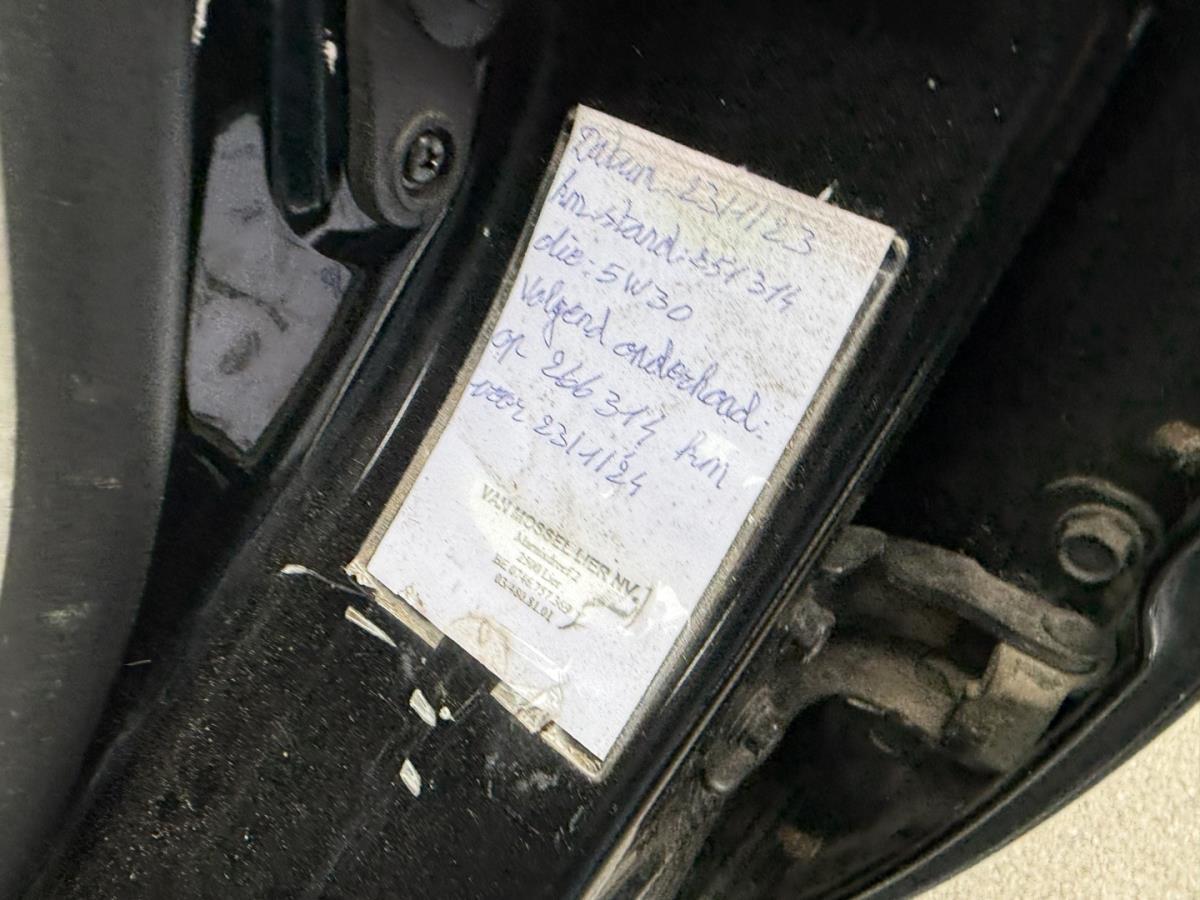 Datum 23/1/23
km stand: 251 314
olie: 5W30
Volgend onderhoud:
op 266 314 km
voor 23/1/24
VAN MOSSEL LIER NV.
2500 Lier